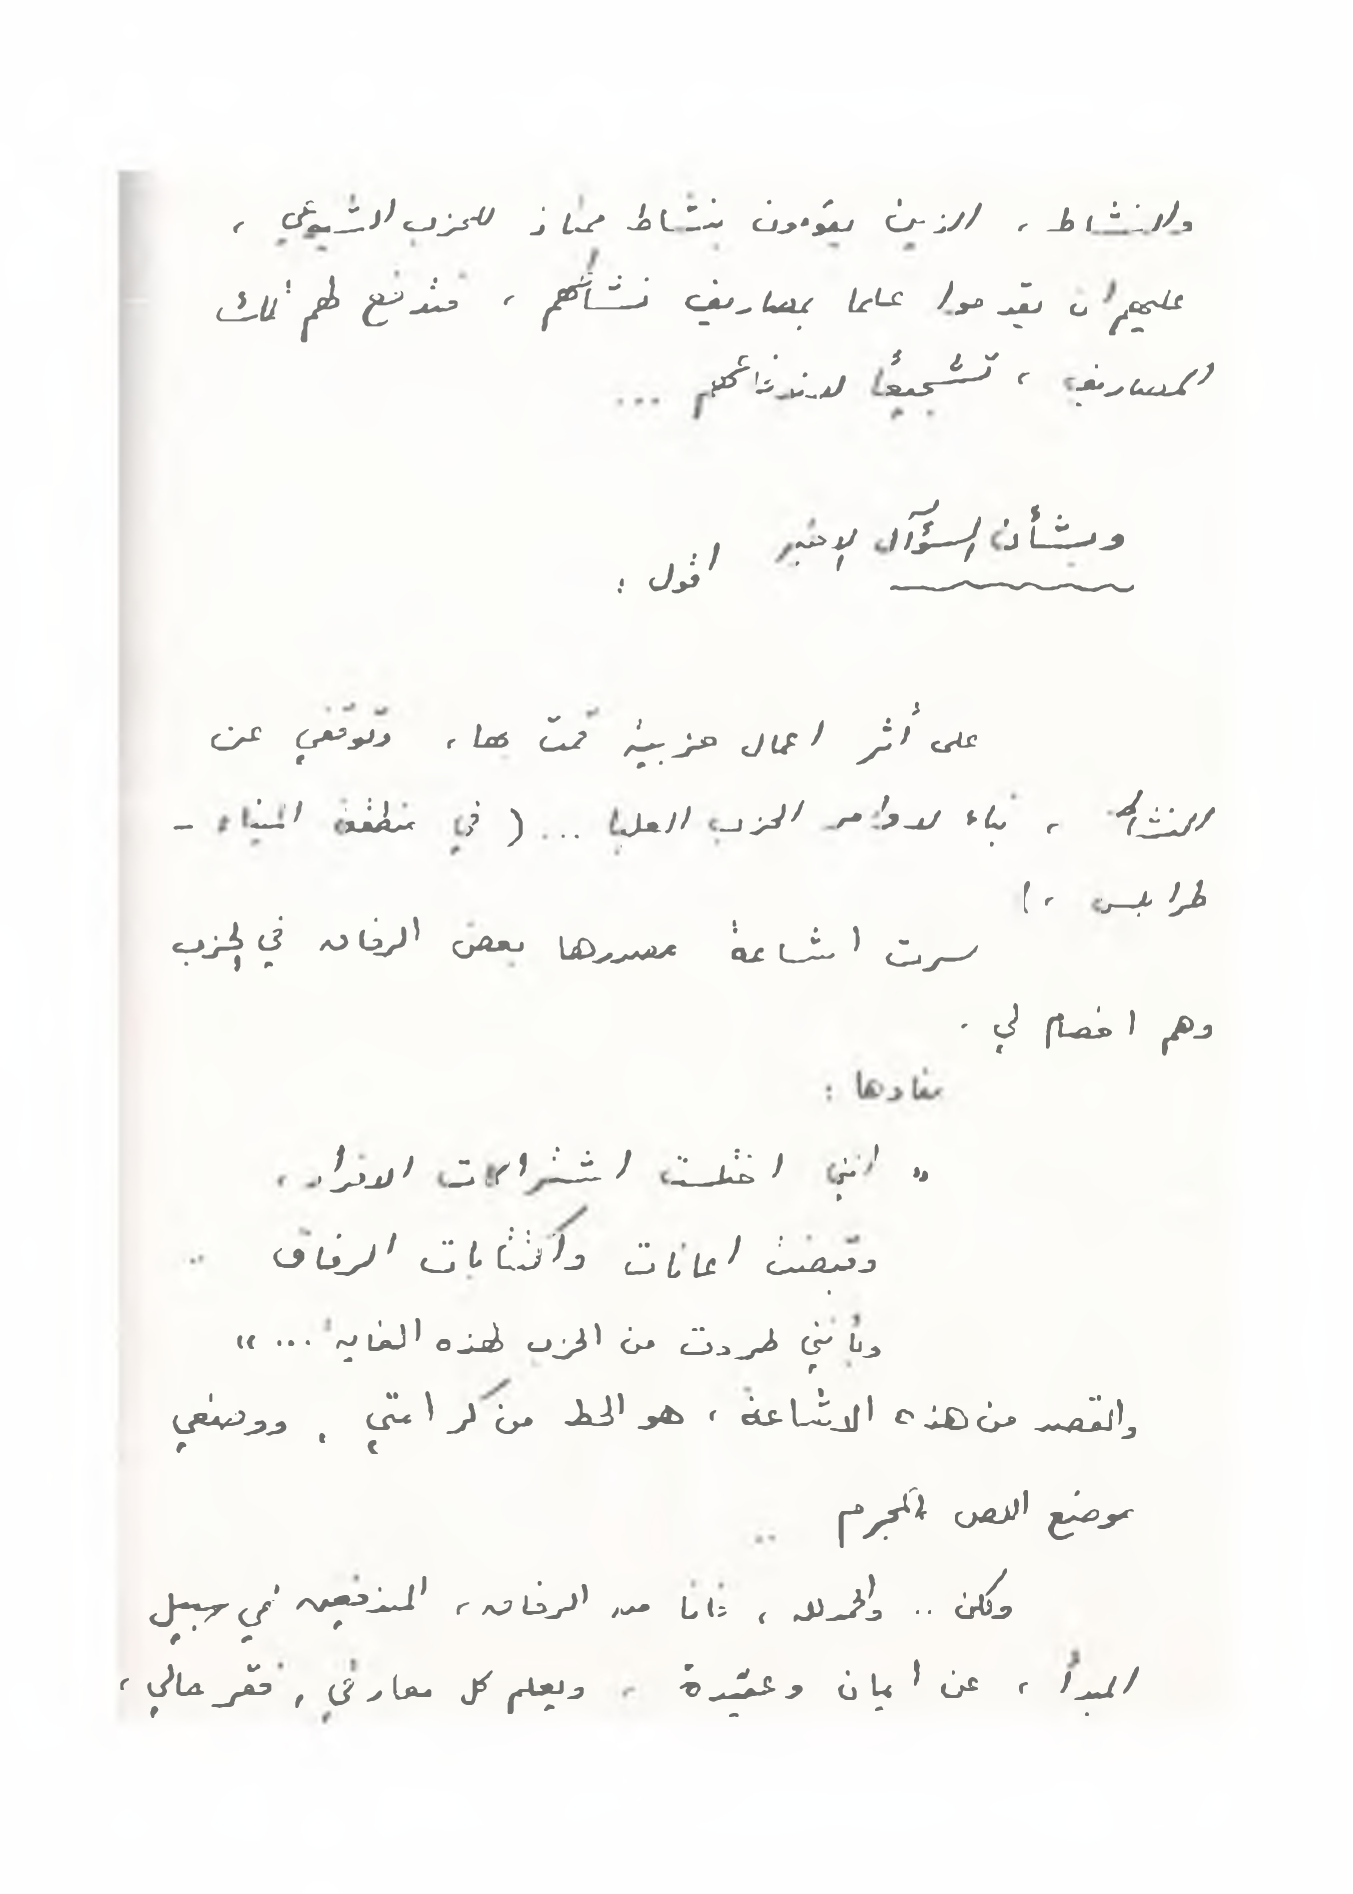 والنشاط ، الذين يقومون بنشاط ممتاز للحزب الشيوعي ،
عليهم ان يقدموا علما بمصاريف نشاطهم ، فتدفع لهم تلك
المصاريف ، تشجيعًا لاندفاعهم ...
وبشأن السؤآل الاخير اقول :
على أثر اعمال حزبية قمتُ بها ، وتوقّفي عن
النشاط ، بناء لاوامر الحزب العليا ... ( في منطقة الميناء -
طرابلس ، )
سرت اشاعة مصدرها بعض الرفاق في الحزب
وهم اخصام لي .
مفادها :
« انني اختلست اشتراكات الافراد ،
وقبضت اعانات واكتتابات الرفاق ..
وبأنني طردت من الحزب لهذه الغاية ... »
والقصد من هذه الاشاعة ، هو الحط من كرامتي ، ووضعي
موضع اللص المجرم ..
ولكن .. والحمدلله ، فانا من الرفاق ، المندفعين في سبيل
المبدأ ، عن ايمان وعقيدة ، ويعلم كل معارفي ، فقر حالي ،